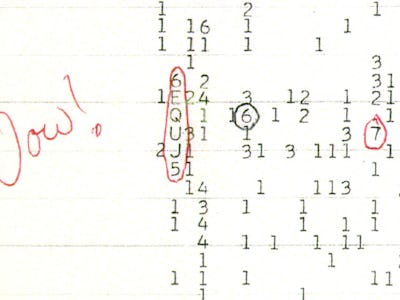 1 2 1
1 16 1 1
1 11 1 1
1 3
6 2 31
1E24 3 12 1 21
Q 1 16 1 2 1 1 1
Wow!
U31 1 3 7
2J1 31 3 111 1
51 1
14 1 113
1 3 1 1 1
4 1 1 1
4 1 1 1 11
1 1
1 1 1 1 11
1 1